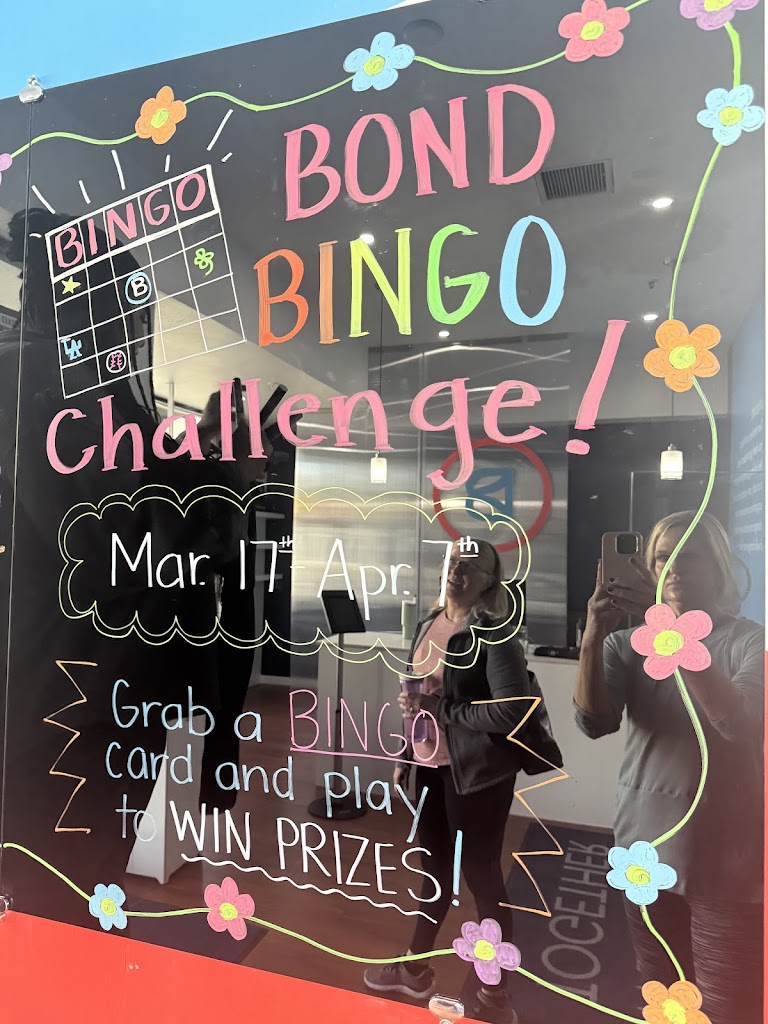 BOND
BINGO
BINGO
B
LA
Challenge!
Mar. 17th - Apr. 7th
Grab a BINGO
card and play
to WIN PRIZES!
TOGETHER